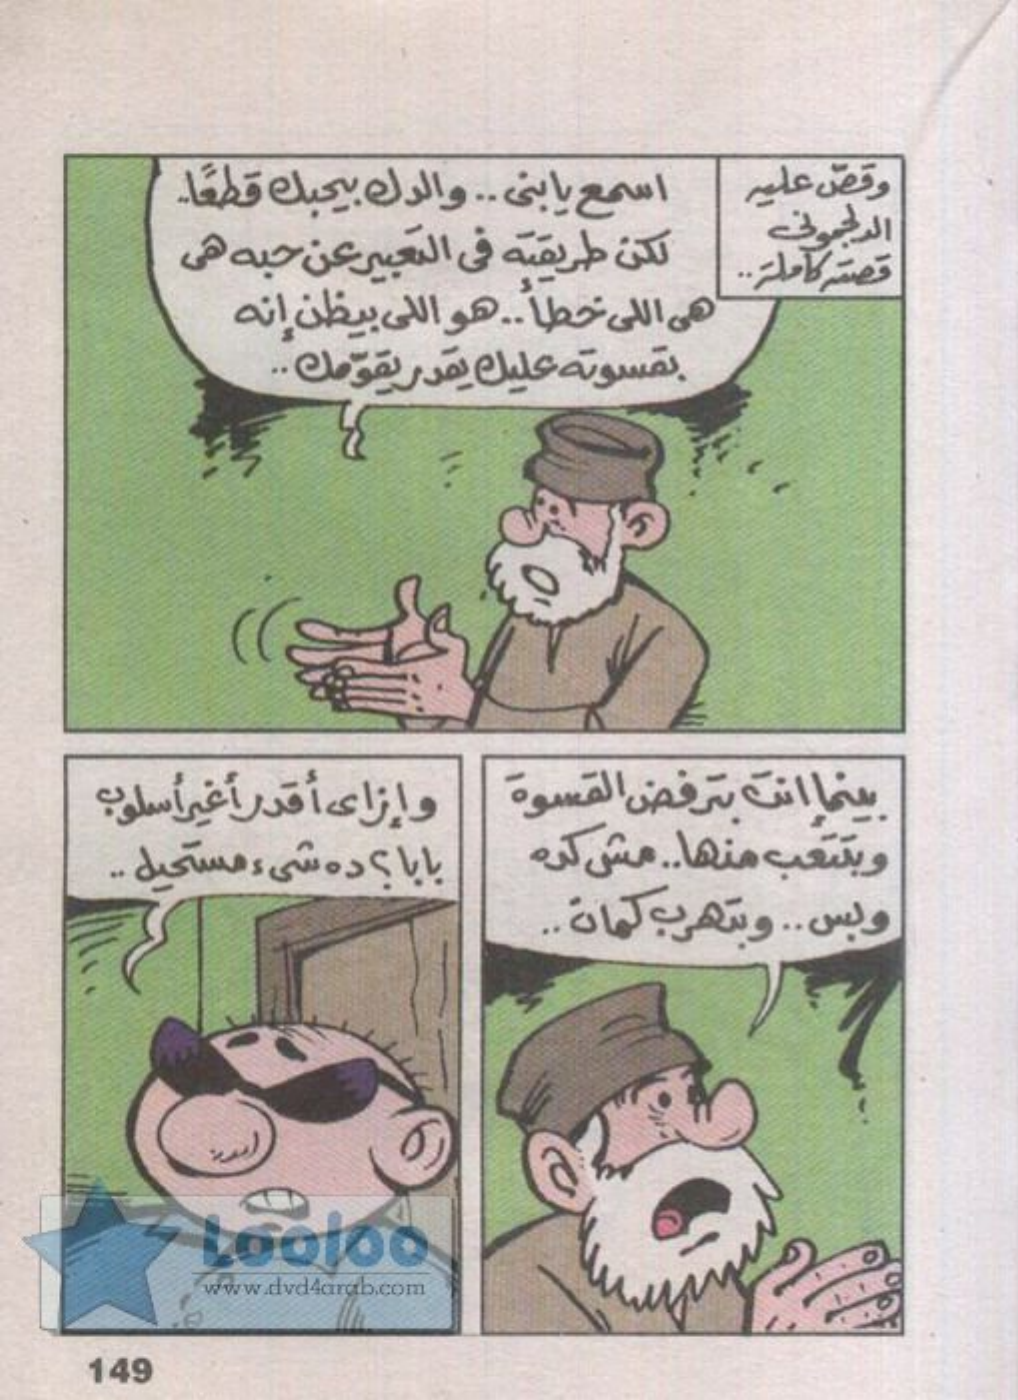 وقصّ عليه
الدلجموني
قصته كاملة..
اسمع يا بنى .. والدك بيحبك قطعًا..
لكن طريقته فى التعبير عن حبه هى
هى اللى خطأ .. هو اللى بيظن إنه
بقسوته عليك يقدر يقوّمك ..
بينما إنت بترفض القسوة
وبتتعب منها.. مش كده
وبس .. وبتهرب كمان ..
وإزاى أقدر أغير أسلوب
بابا؟ ده شىء مستحيل ..
Looloo
www.dvd4arab.com
149